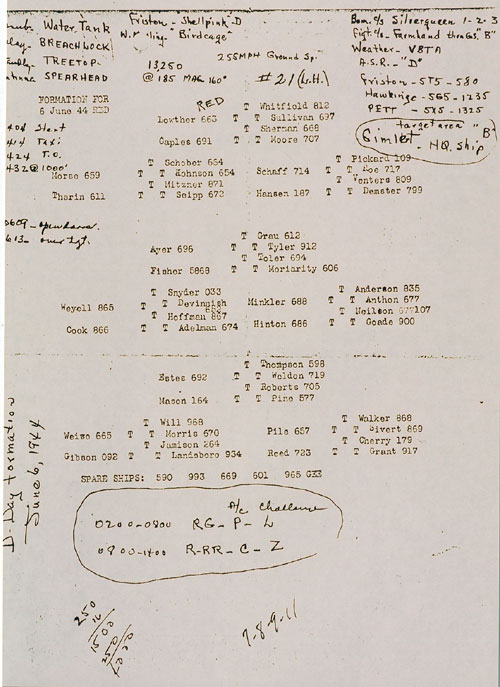 Water Tank
BREACHLOCK
TREETOP
SPEARHEAD
Friston - Shellpink - D
"Birdcage"
13250
@ 185 MAG 160°
255 MPH Ground Sp.
#21 (L.H.)
Bom. c/s Silverqueen 1-2-3
Farmland thru Gs. "B"
Weather - V8TA
A.S.R. - "D"
Friston - 575 - 580
Hawkinge - 565 - 1235
PETT - 525 - 1325
target area "B"
Gimlet - HQ. Ship
FORMATION FOR
6 June 44 RED
RED
404 Start
Taxi
424 T.O.
432 @ 1000'
0609 -
613 - over tgt.
T Whitfield 812
Lowther 663 T T Sullivan 697
T Sherman 668
Caples 691 T T Moore 707
T Schober 684
Morse 659 T T Johnson 654
T Mitzner 871
Tharin 611 T T Seipp 673
T Pickard 109
Schaff 714 T T Loe 717
T Venters 809
Hansen 187 T T Demster 799
T Grau 612
Ayer 696 T T Tyler 912
T Toler 694
Fisher 5868 T T Moriarity 606
T Snyder 033
Weyell 865 T T Devinnish
T Hoffman 867
Cook 866 T T Adelman 674
T Anderson 835
Minkler 688 T T Anthon 677
T Neilson 107
Hinton 686 T T Goade 900
T Thompson 598
Estes 692 T T Weldon 719
T Roberts 705
Mason 164 T T Pine 577
T Will 968
Weiwe 665 T T Morris 670
T Jamison 264
Gibson 092 T T Landsboro 934
T Walker 868
Pile 657 T T Sivert 869
T Cherry 179
Reed 723 T T Grant 917
SPARE SHIPS: 590 993 669 601 965 GEE
D-Day Formation
June 6, 1944
A/C Challenge
0200-0800 RG-P-L
0800-1400 R-RR-C-Z
250
7-8-9-11